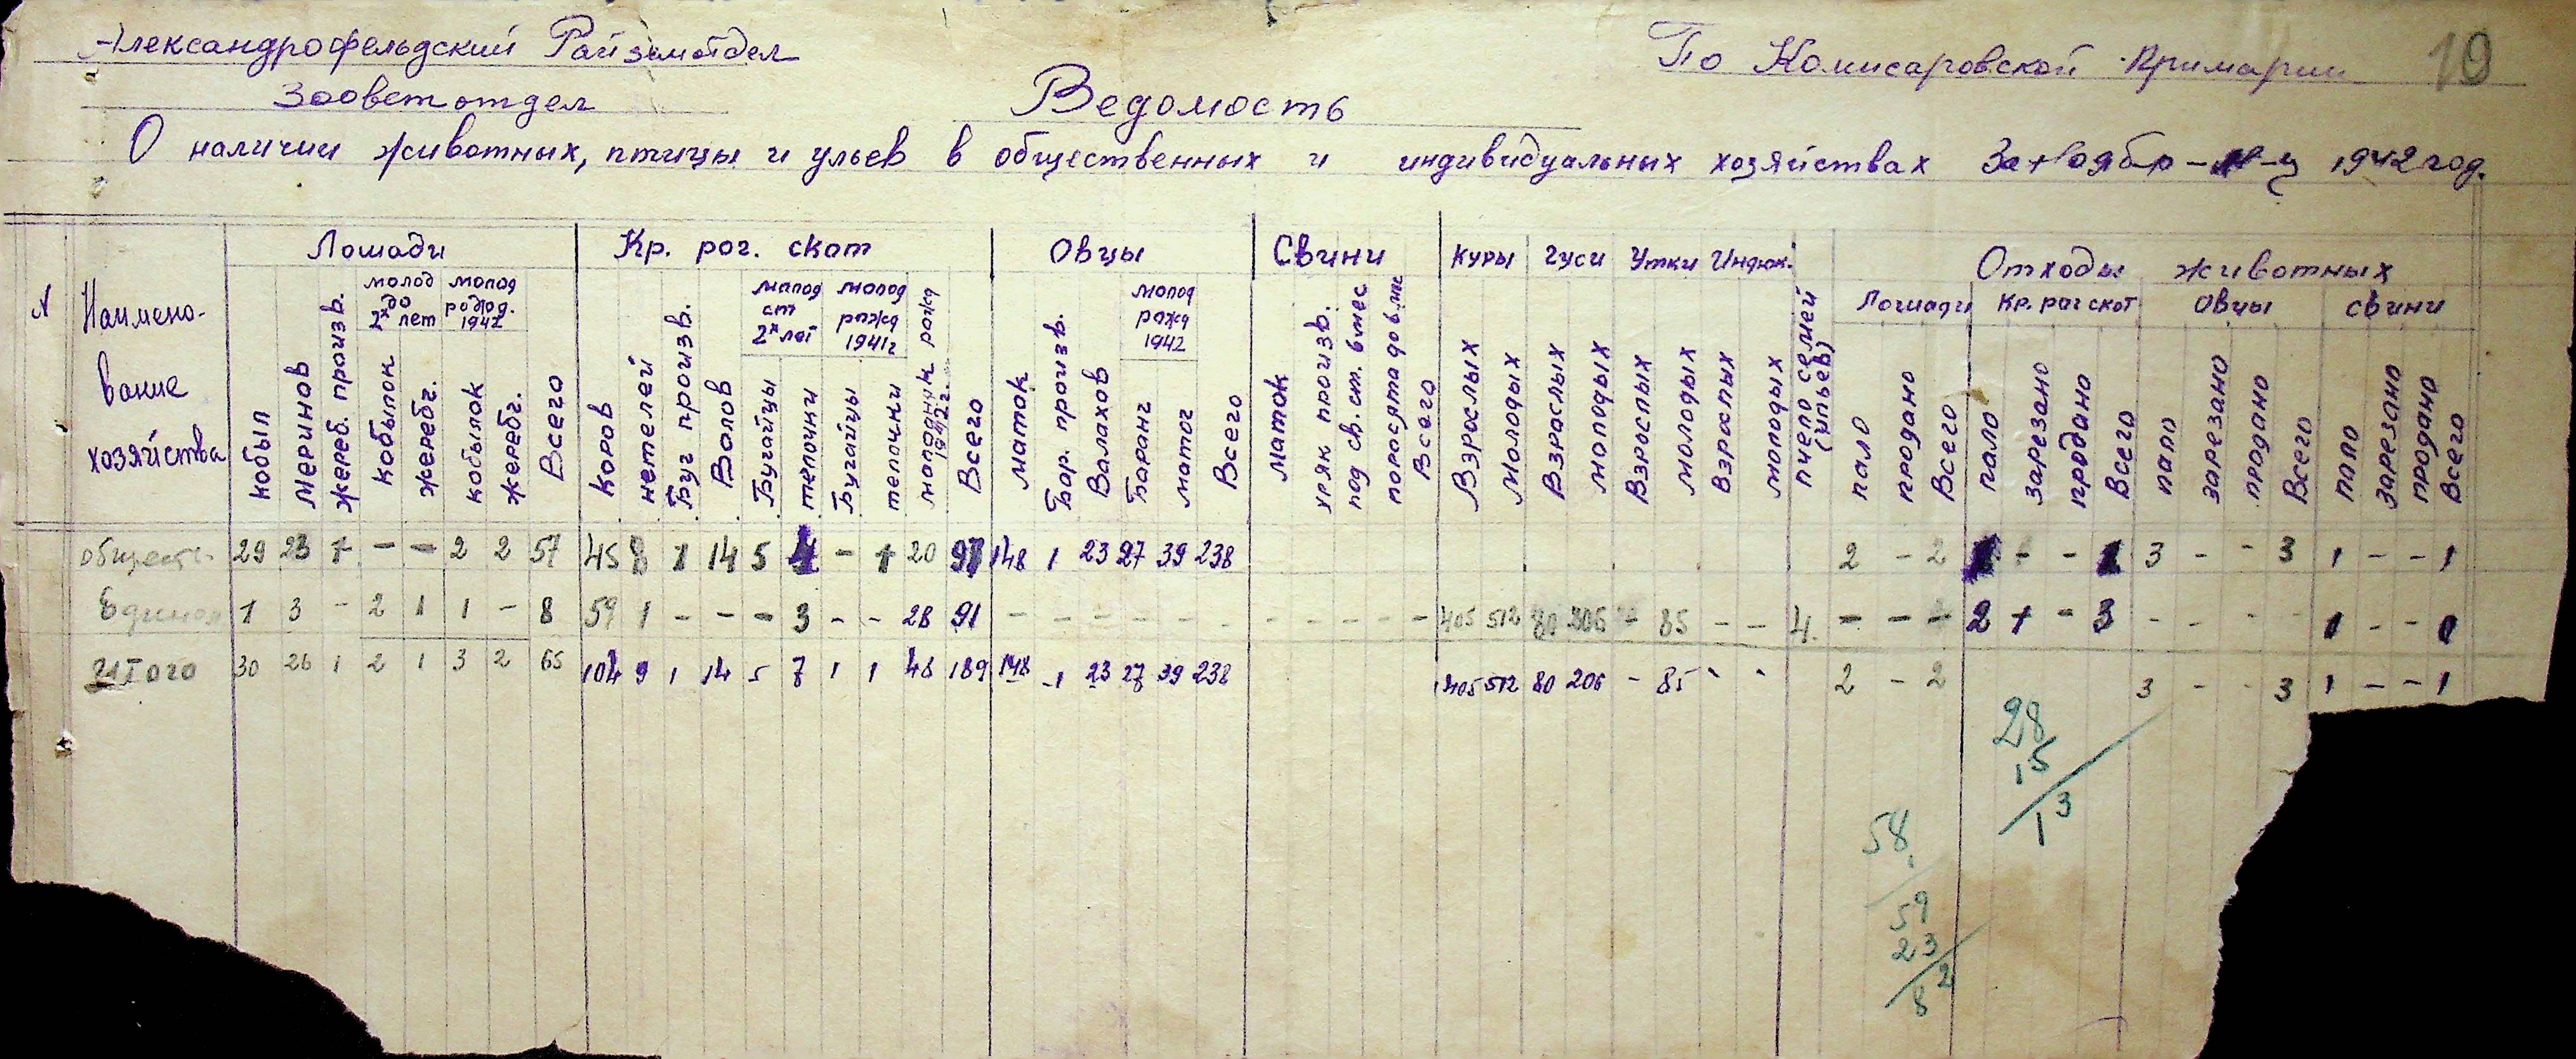 Александрофельдский Райземотдел
По Комисаровской Примарии 19
Зооветотдел
Ведомость
О наличии животных, птицы и ульев в общественных и индивидуальных хозяйствах За Ноябр м-ц 1942 год.
Лошади Кр. рог. скот Овцы Свини Куры Гуси Утки Индюк. Отходы животных
Лошади Кр. рог скот Овцы свини
N Наимено-
вание
хозяйства
молод до 2х лет
молод рожд. 1942
кобыл меринов жереб. произв. кобылок жеребч. кобылок жеребч. Всего
молод ст 2х лет
молод рожд 1941г
коров нетелей Буг произв. Валов Бугайцы телочки Бугайцы телочки молодняк рожд 1942 г. Всего
молод рожд 1942
маток Бар. произв. Валахов Баранч маток Всего
маток хряк произв. под св. ст. 6 мес поросята до 6 ме Всего
Взрослых молодых Взраслых молодых Взрослых молодых Взрослых молодых пчело семей (ульев)
пало продано Всего пало зарезано продано Всего пало зарезано продано Всего пало зарезано продано Всего
обществ. 29 23 1 - - 2 2 57 45 8 1 14 5 4 - 1 20 97 148 1 23 27 39 238 2 - 2 1 - - 1 3 - - 3 1 - - 1
Единол 1 3 - 2 1 1 - 8 59 1 - - - 3 - - 28 91 - - - - - - - - - - - 405 512 80 206 - 85 - - 4 - - - 2 1 - 3 - - - - 1 - - 1
Итого 30 26 1 2 1 3 2 65 104 9 1 14 5 7 1 1 48 189 148 1 23 27 39 238 405 512 80 206 - 85 - - 2 - 2 3 - - 3 1 - - 1
28
15
13
58
59
23
82